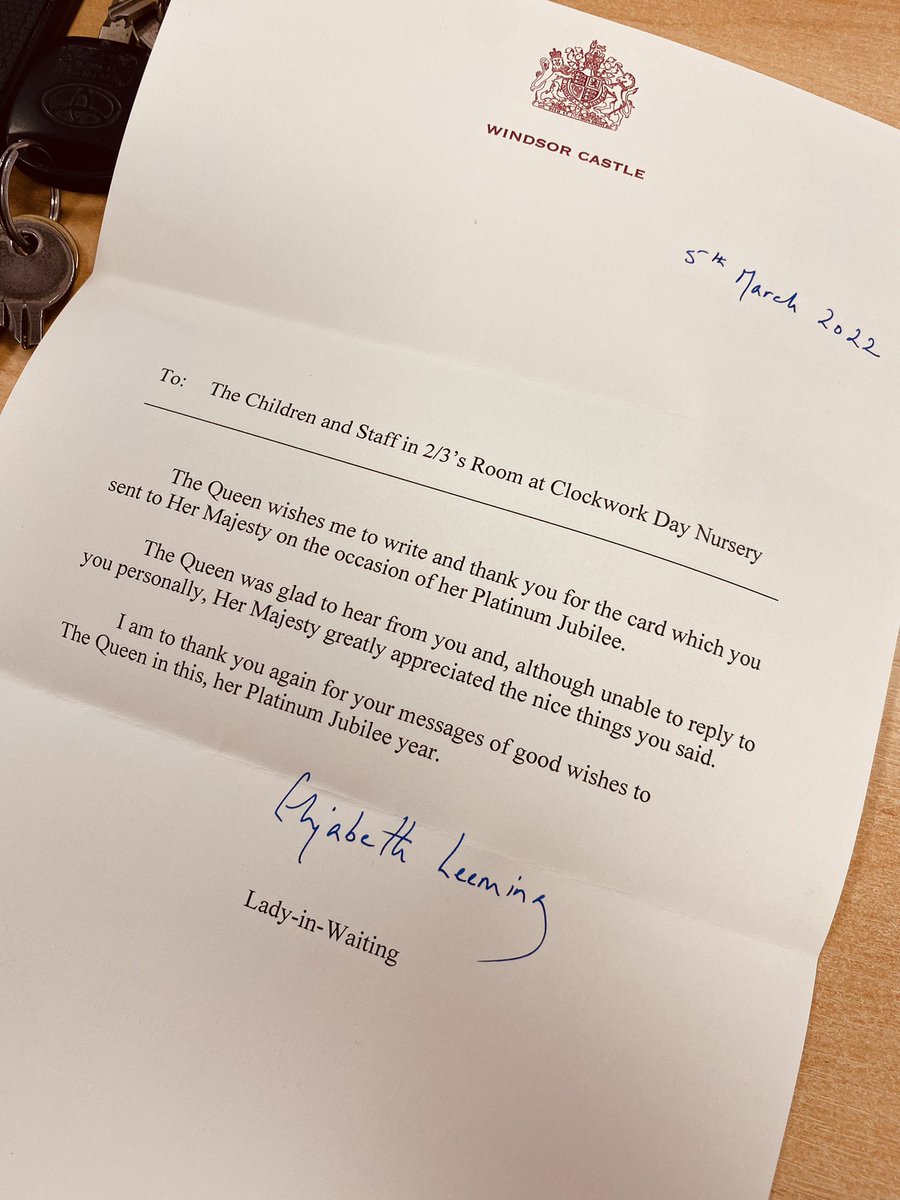 WINDSOR CASTLE
5th March 2022
To: The Children and Staff in 2/3's Room at Clockwork Day Nursery
The Queen wishes me to write and thank you for the card which you
sent to Her Majesty on the occasion of her Platinum Jubilee.
The Queen was glad to hear from you and, although unable to reply to
you personally, Her Majesty greatly appreciated the nice things you said.
I am to thank you again for your messages of good wishes to
The Queen in this, her Platinum Jubilee year.
Elizabeth Leeming
Lady-in-Waiting